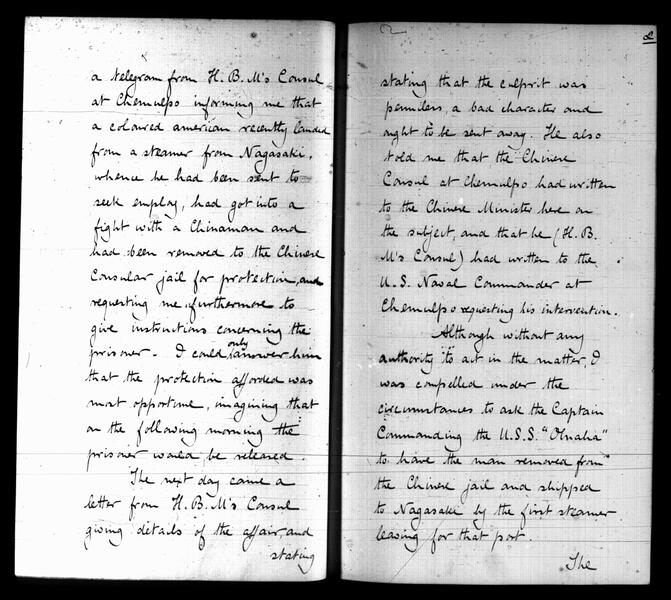 a telegram from H. B. M's Consul
at Chemulpo informing me that
a coloured american recently landed
from a steamer from Nagasaki,
whence he had been sent to
seek employ, had got into a
fight with a Chinaman and
had been removed to the Chinese
Consular jail for protection, and
requesting me, furthermore to
give instructions concerning the
prisoner. I could only answer him
that the protection afforded was
most opportune, imagining that
on the following morning the
prisoner would be released.
The next day came a
letter from H. B. M's Consul
giving details of the affair, and
stating
2
stating that the culprit was
penniless, a bad character and
ought to be sent away. He also
told me that the Chinese
Consul at Chemulpo had written
to the Chinese Minister here on
the subject, and that he (H. B.
M's Consul) had written to the
U. S. Naval Commander at
Chemulpo requesting his intervention.
Although without any
authority to act in the matter, I
was compelled under the
circumstances to ask the Captain
Commanding the U. S. S. "Omaha"
to have the man removed from
the Chinese jail and shipped
to Nagasaki by the first steamer
leaving for that port.
The